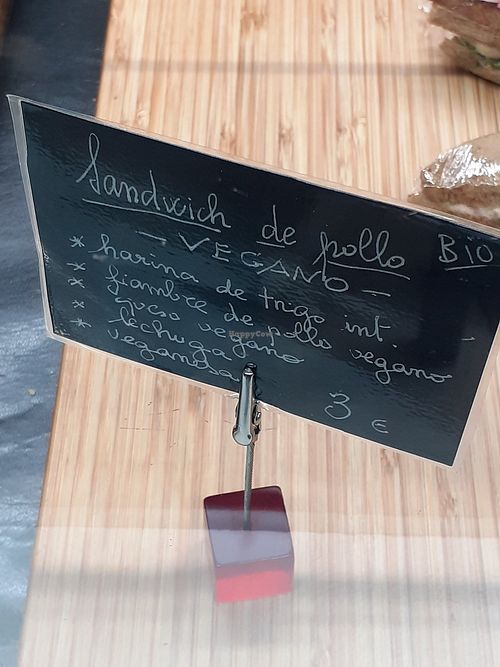 Sandwich de pollo BIO
- VEGANO -
* harina de trigo int.
* fiambre de pollo vegano
* queso vegano
* lechuga
veganesa
3 €
HappyCow